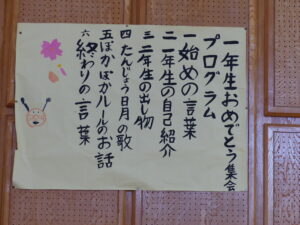 一年生おめでとう集会
プログラム
一 始めの言葉
二 一年生の自己紹介
三 二年生の出し物
四 たんじょう日月の歌
五 ぽかぽかルールのお話
六 終わりの言葉